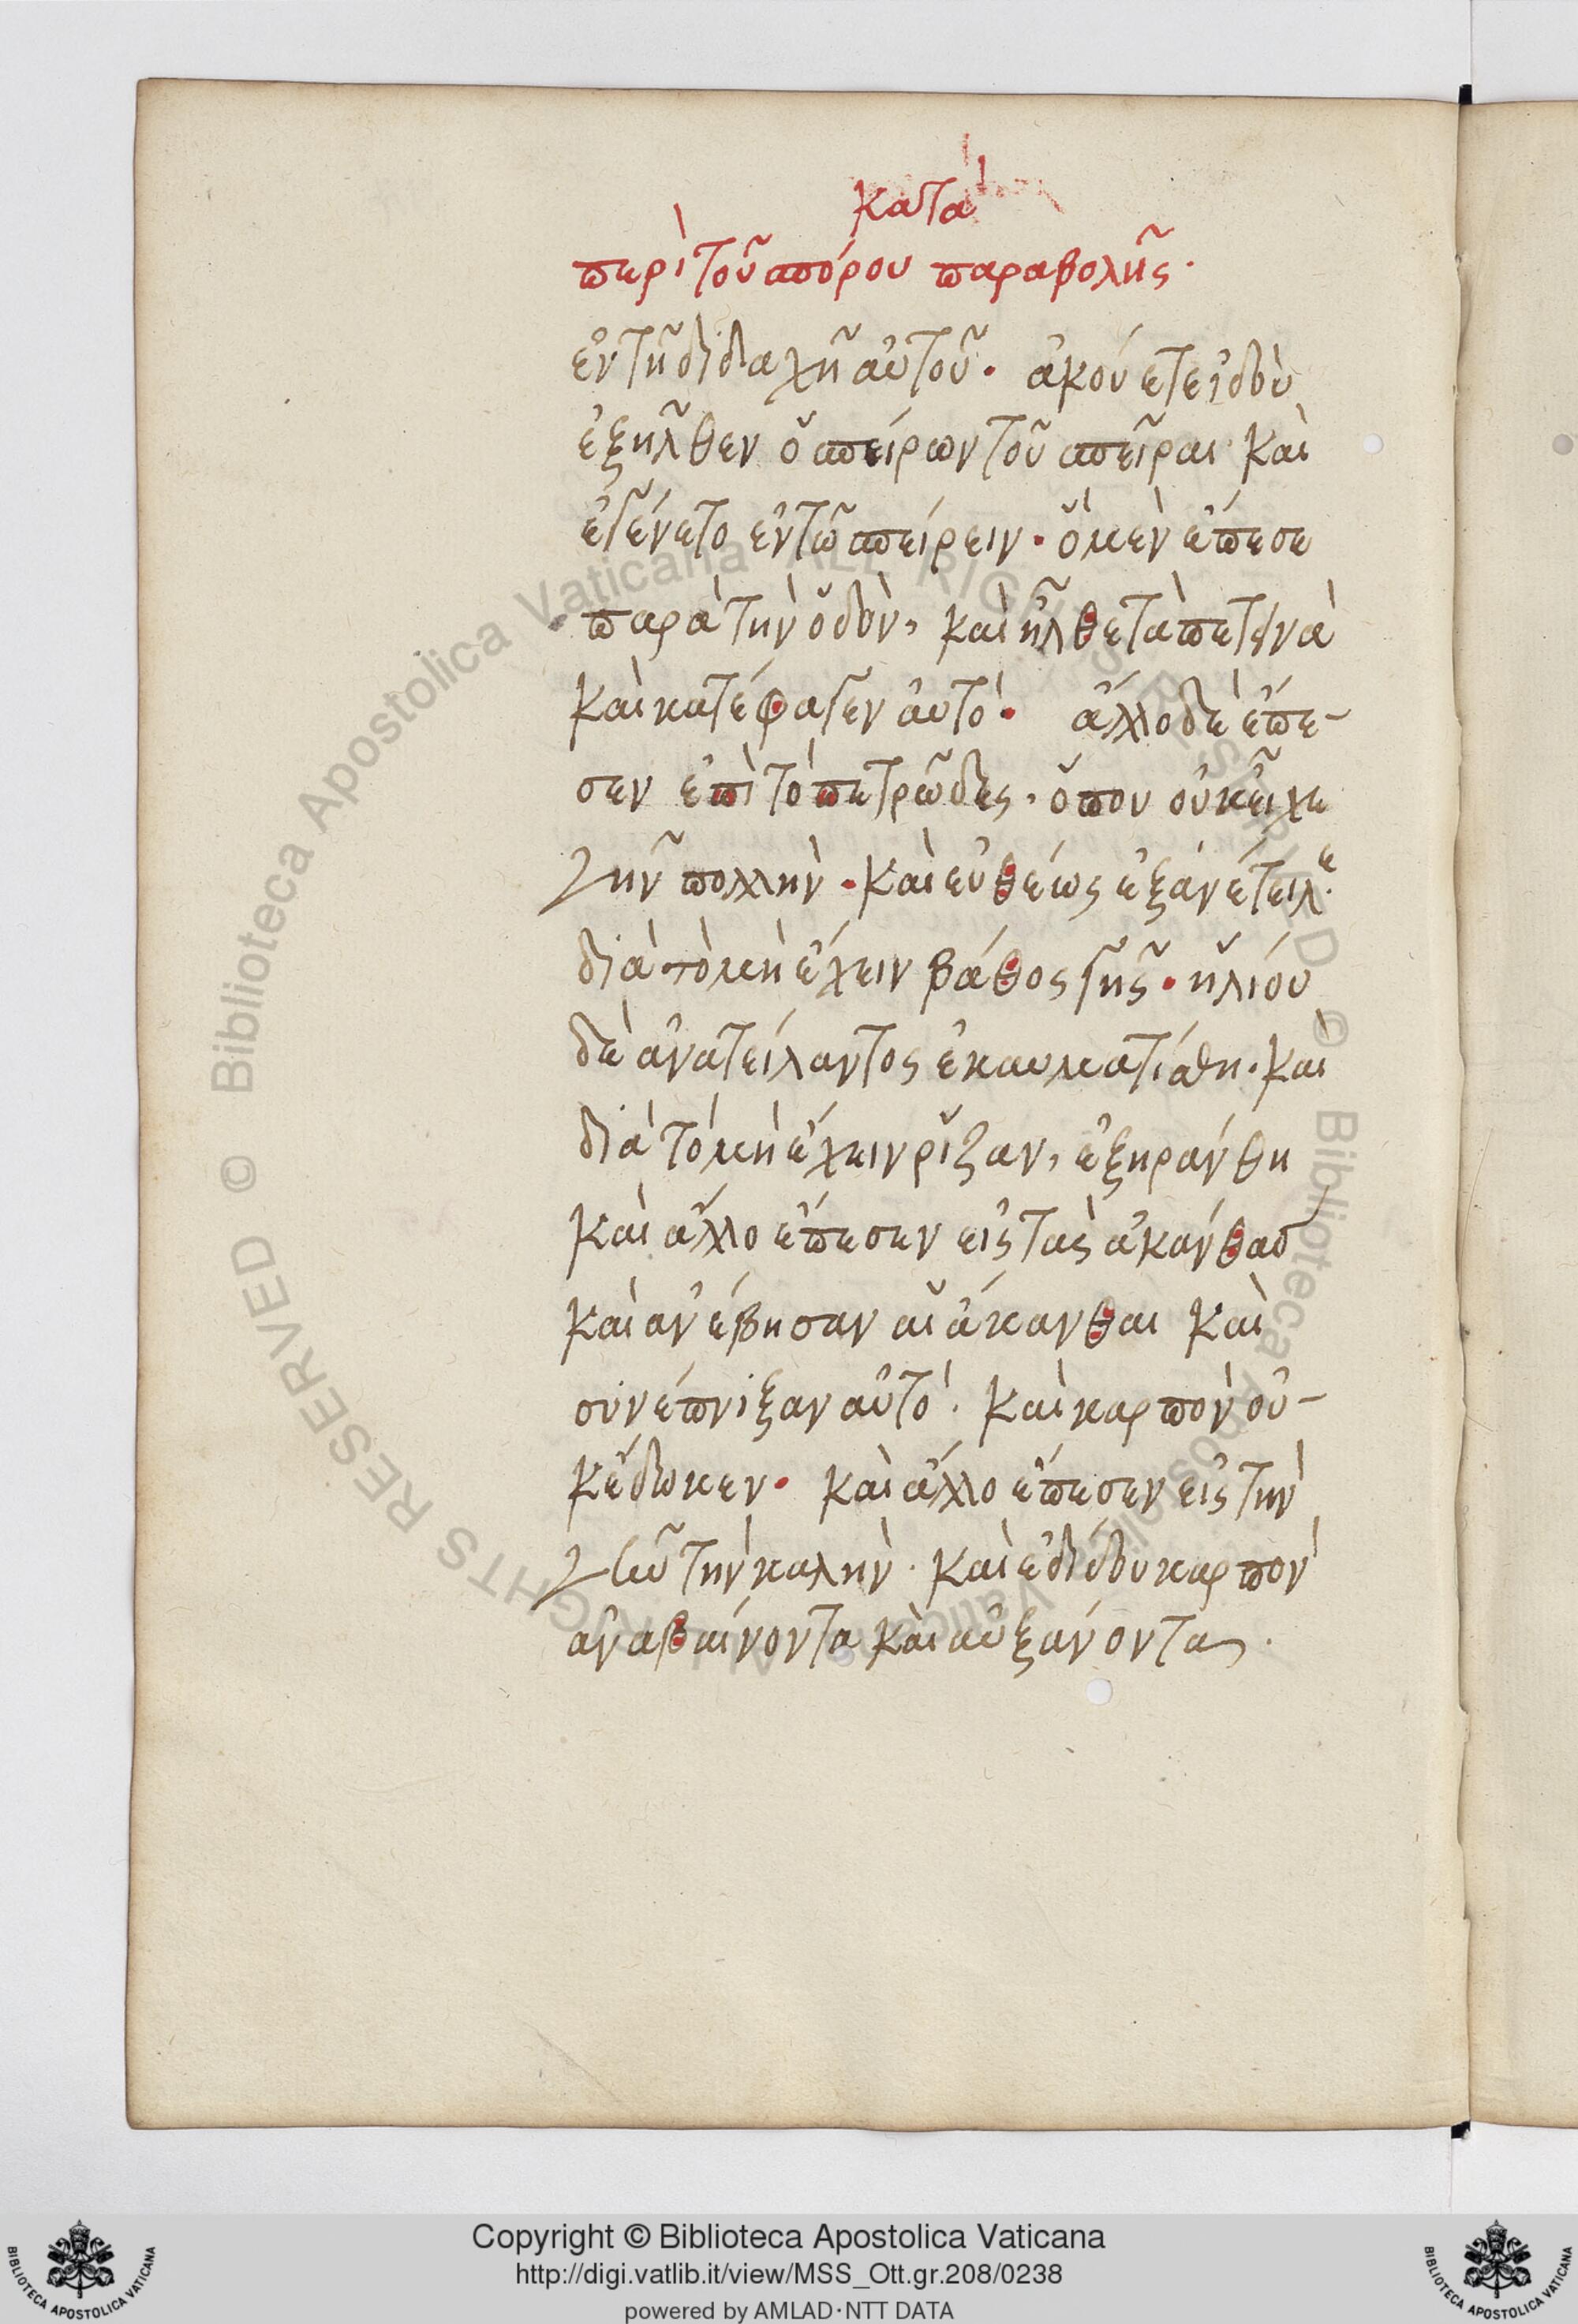 κατὰ
περὶ τοῦ σπόρου παραβολῆς.
ἐν τῆ διδαχῆ αὐτοῦ. ἀκούετε ἰδοὺ
ἐξῆλθεν ὁ σπείρων τοῦ σπεῖραι καὶ
ἐγένετο ἐν τῶ σπείρειν. ὃ μὲν ἔπεσε
παρὰ τὴν ὁδὸν, καὶ ἦλθε τὰ πετεινὰ
καὶ κατέφαγεν αὐτό. ἄλλο δὲ ἔπε-
σεν ἐπὶ τὸ πετρῶδες, ὅπου οὐκ εἶχε
γῆν πολλὴν. καὶ εὐθέως ἐξανέτειλε
διὰ τὸ μὴ ἔχειν βάθος γῆς. ἡλίου
δὲ ἀνατείλαντος ἐκαυματίσθη. καὶ
διὰ τὸ μὴ ἔχειν ρίζαν, ἐξηράνθη
καὶ ἄλλο ἔπεσεν εἰς τὰς ἀκάνθας
καὶ ἀνέβησαν αἱ ἄκανθαι καὶ
συνέπνιξαν αὐτό. καὶ καρπὸν οὐ-
κ ἔδωκεν. καὶ ἄλλο ἔπεσεν εἰς τὴν
γῆν τὴν καλὴν. καὶ ἐδίδου καρπὸν
ἀναβαίνοντα καὶ αὐξάνοντα.
Copyright © Biblioteca Apostolica Vaticana
http://digi.vatlib.it/view/MSS_Ott.gr.208/0238
powered by AMLAD·NTT DATA